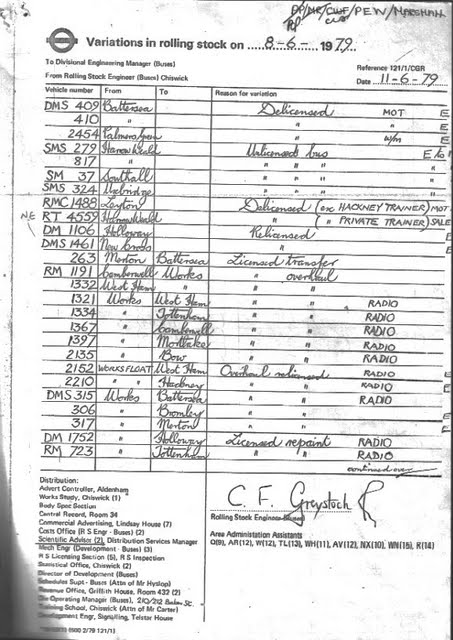 DP/DIR/CWF/PEW/MARSHALL
RP
Variations in rolling stock on 8-6- 1979.
To Divisional Engineering Manager (Buses)
Reference 121/1/CGR
From Rolling Stock Engineer (Buses) Chiswick
Date 11-6-79
Vehicle number From To Reason for variation
DMS 409 Battersea Delicensed MOT E
410 " " " E
2454 Palmers Green " w/m E
SMS 279 Harrow Weald Unlicensed bus E to
817 " " " "
SM 37 Southall " " "
SMS 324 Uxbridge " " "
RMC 1488 Leyton Delicensed (ex HACKNEY TRAINER) MOT
NE RT 4559 Harrow Weald " (" PRIVATE TRAINER) SALE
DM 1106 Holloway Relicensed E
DMS 1461 New Cross " E
263 Merton Battersea Licensed transfer
RM 1191 Camberwell Works " overhaul
1332 West Ham " " "
1321 Works West Ham " " RADIO
1334 " Tottenham " " RADIO
1367 " Camberwell " " RADIO
1397 " Mortlake " " RADIO
2135 " Bow " " RADIO
2152 WORKS FLOAT West Ham Overhaul relicensed RADIO E
2210 " " Hackney " " RADIO E
DMS 315 Works Battersea " " RADIO
306 " Bromley " "
317 " Merton " "
DM 1752 " Holloway Licensed repaint RADIO
RM 723 " Tottenham " " RADIO
continued over
Distribution:
Advert Controller, Aldenham
Works Study, Chiswick (1)
Body Spec Section
Central Record, Room 34
Commercial Advertising, Lindsay House (7)
Costs Office (R S Engr - Buses) (2)
Scientific Advisor (2), Distribution Services Manager
Mech Engr (Development - Buses) (3)
R S Licensing Section (5), R S Inspection
Statistical Office, Chiswick (2)
Director of Development (Buses)
Schedules Supt - Buses (Attn of Mr Hyslop)
Revenue Office, Griffith House, Room 432 (2)
Operating Manager (Buses), 210/212
Training School, Chiswick (Attn of Mr Carter)
Development Engr, Signalling, Telstar House
C. F. Greystoch
Rolling Stock Engineer (Buses)
Area Administation Assistants
Q(9), AR(12), W(12), TL(13), WH(11), AV(12), NX(10), WN(15), R(14)
2/79 121/1)